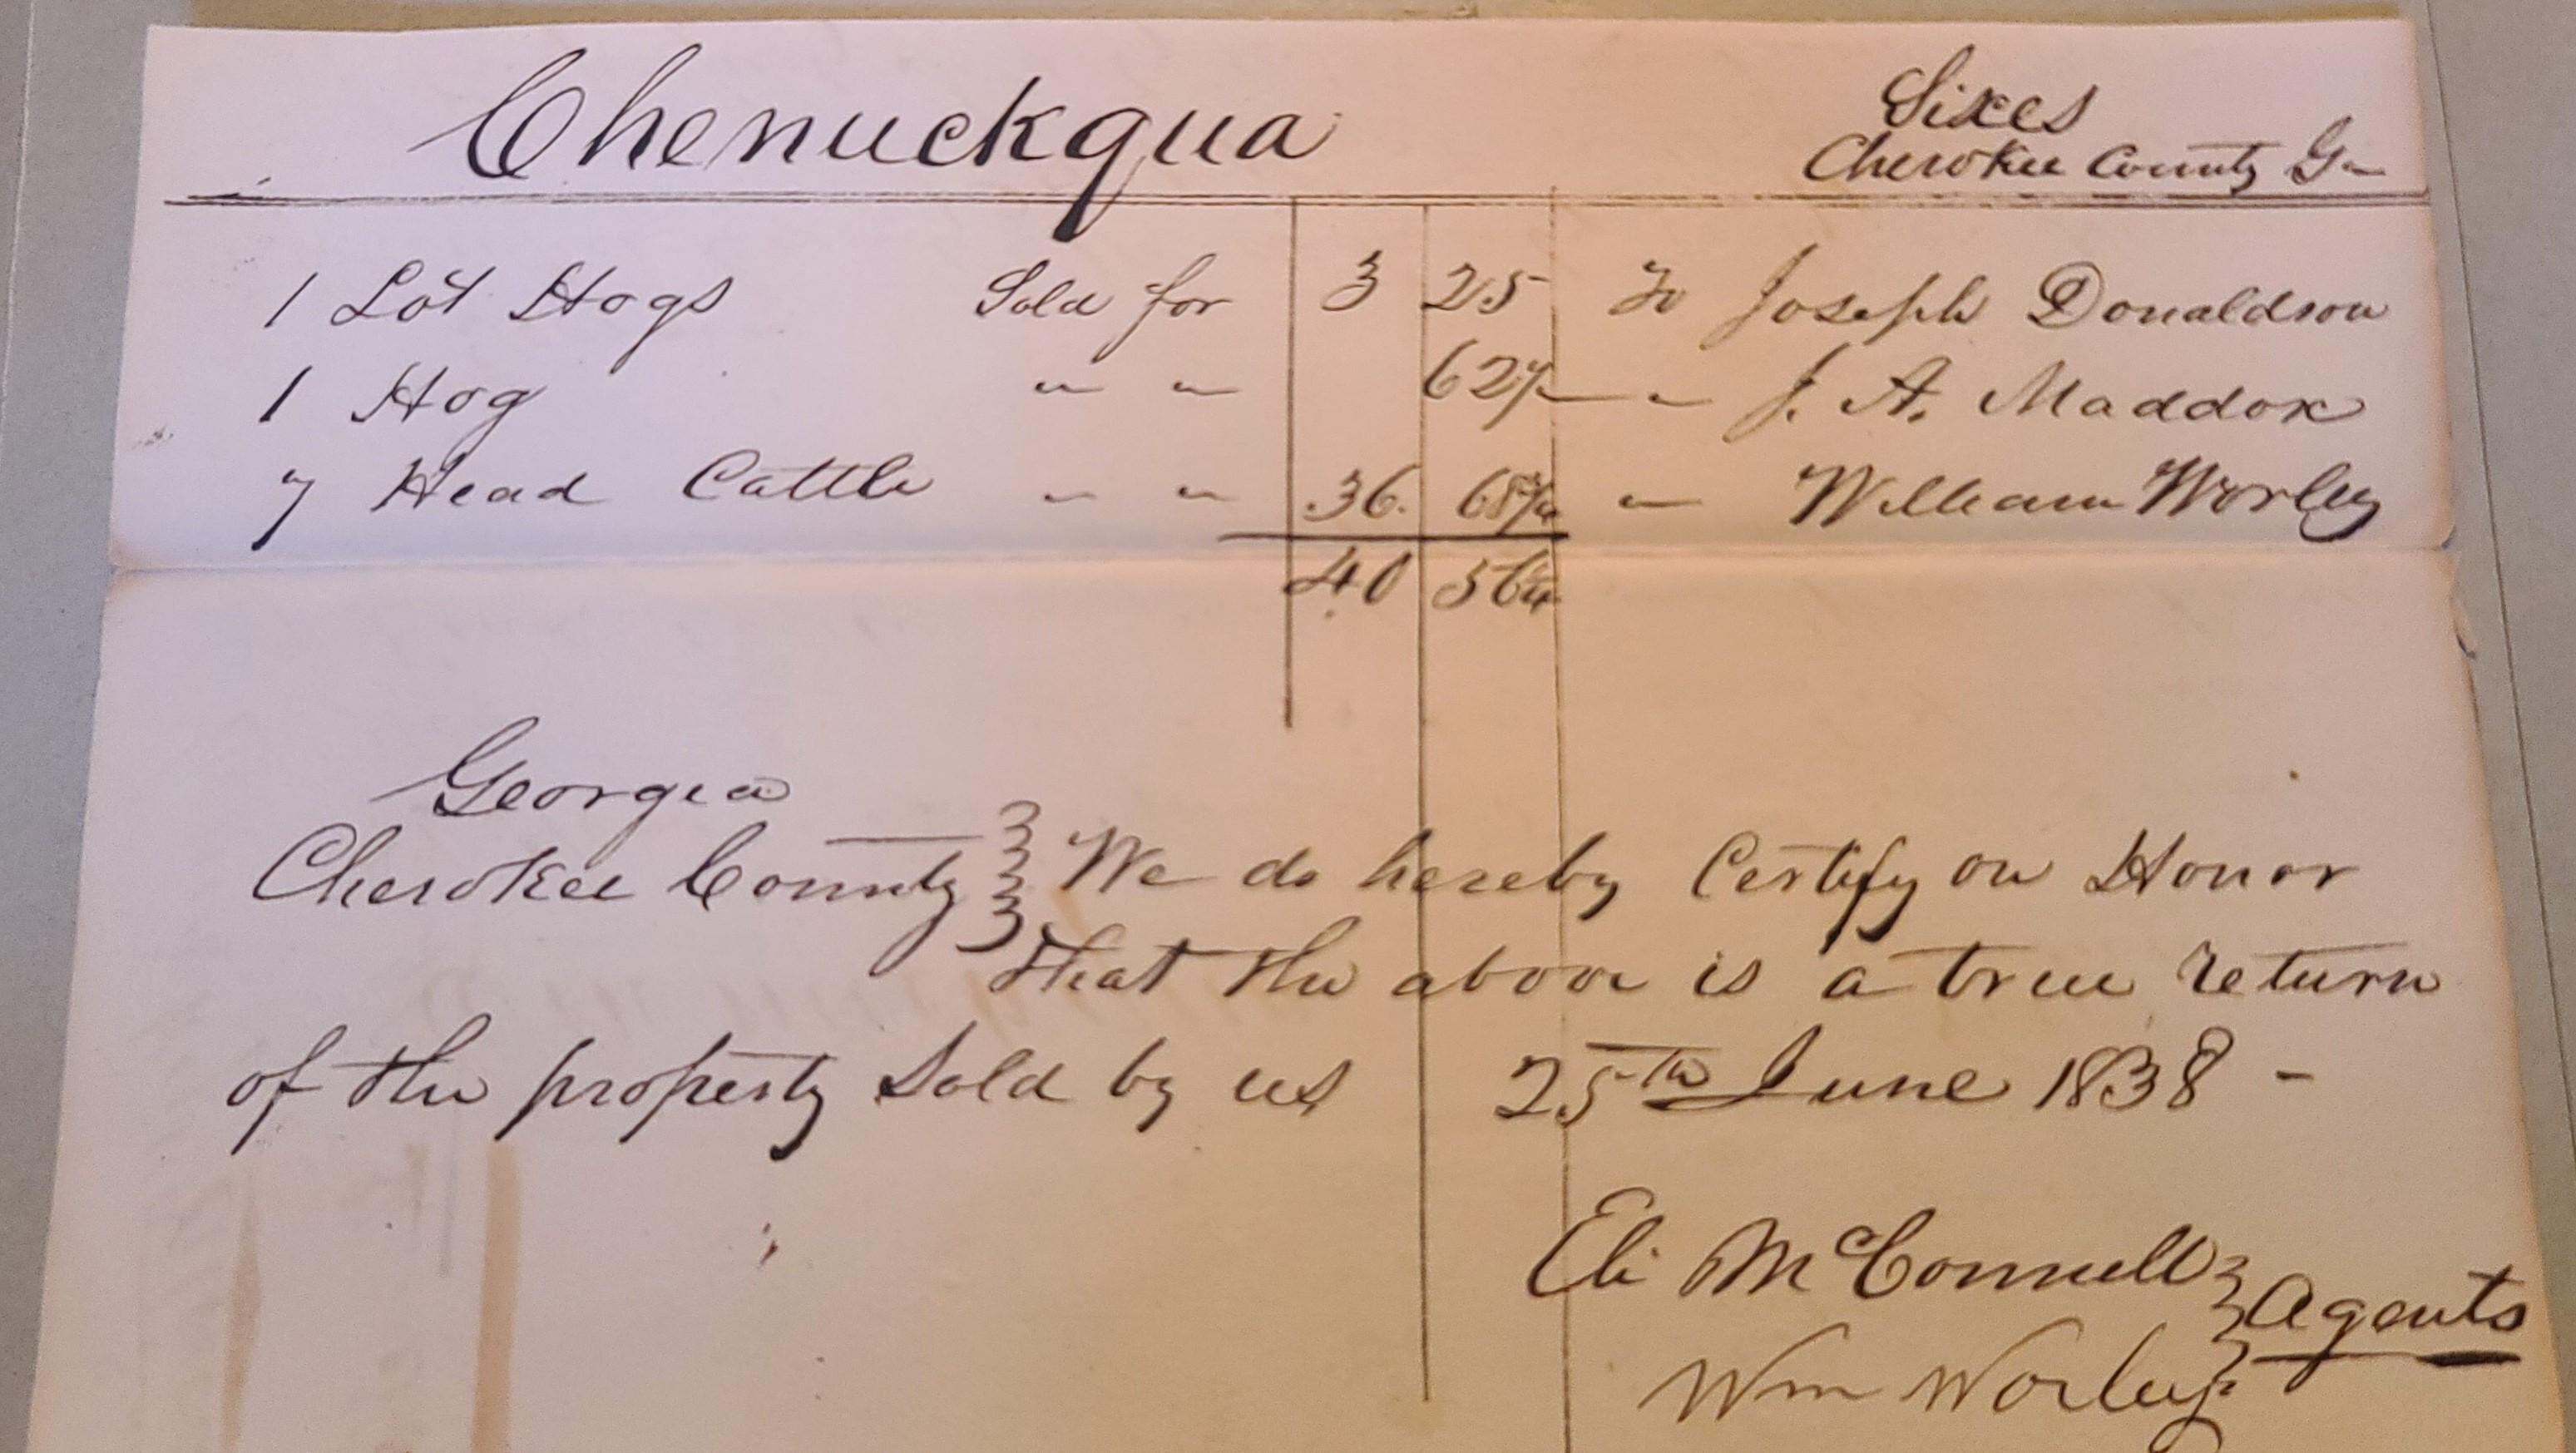 Chenuckqua
Sixes
Cherokee County Ga
1 Lot Hogs Sold for 3 25 To Joseph Donaldson
1 Hog " " 62½ " J. A. Maddox
7 Head Cattle " " 36. 68¾ " William Worley
40 56¼
Georgia
Cherokee County } We do hereby Certify on Honor
that the above is a true return
of the property Sold by us 25th June 1838 -
Eli McConnell } Agents
Wm Worley